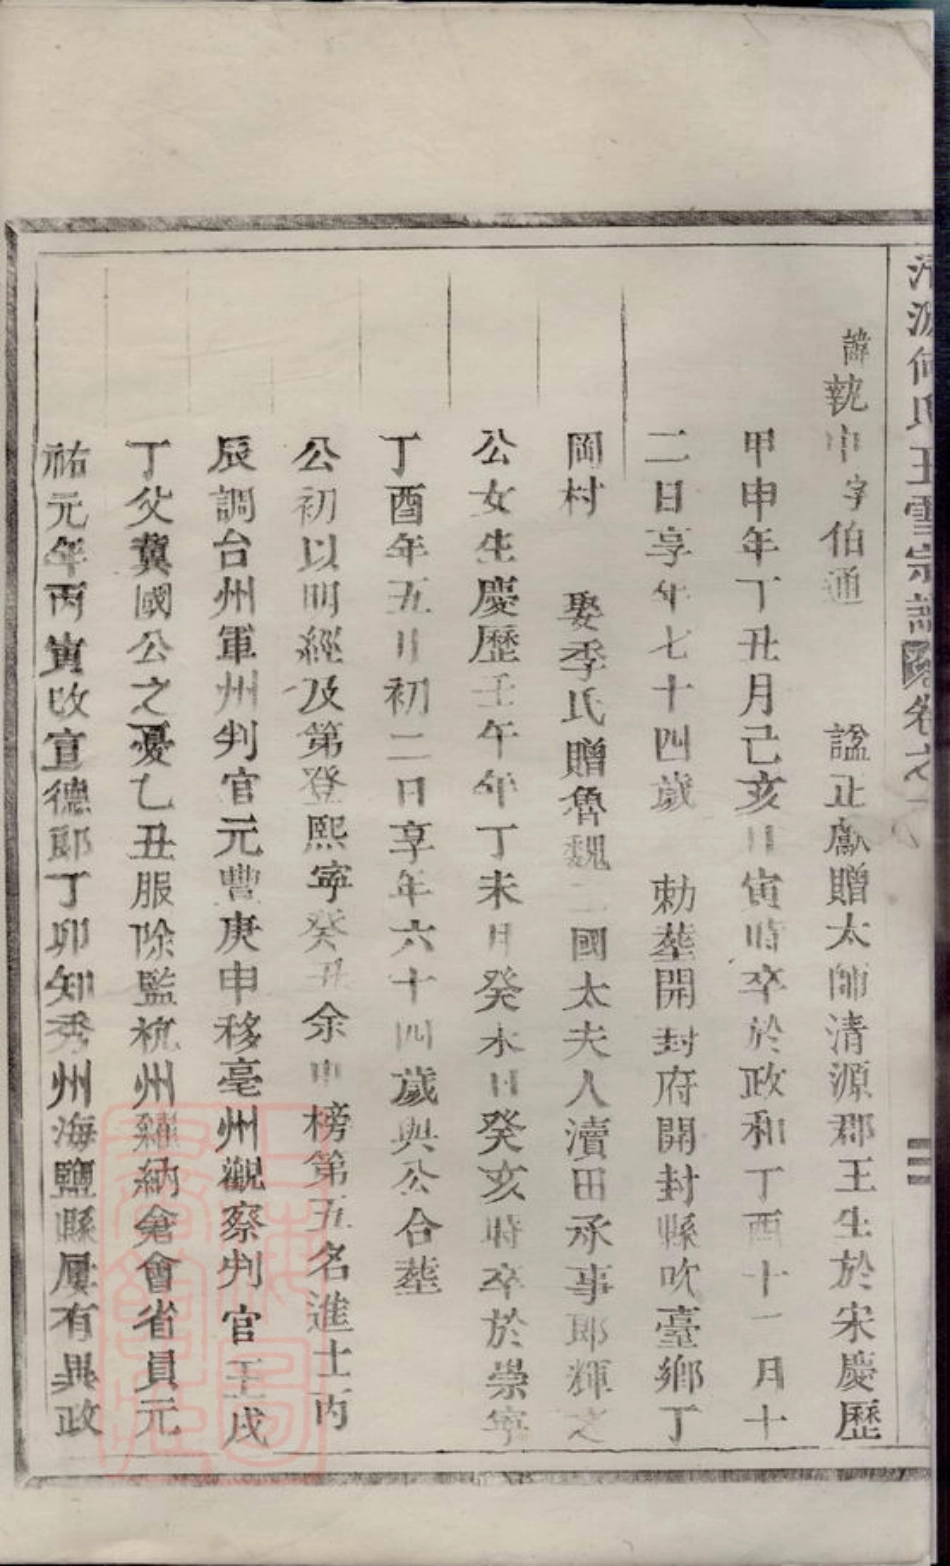 清源何氏玉雪宗譜 卷之一
諱執中字伯通 諡正獻贈太師清源郡王生於宋慶歷
甲申年丁丑月己亥日寅時卒於政和丁酉十一月十
二日享年七十四歲 勅塟開封府開封縣吹臺鄉丁
岡村 娶季氏贈魯魏二國太夫人瀆田承事郎輝之
公女生慶歷壬午年丁未月癸未日癸亥時卒於崇寧
丁酉年五月初二日享年六十四歲與公合塟
公初以明經及第登熙寧癸丑余中榜第五名進士丙
辰調台州軍州判官元豐庚申移亳州觀察判官壬戌
丁父冀國公之憂乙丑服除監杭州糴納倉會省員元
祐元年丙寅改宣德郎丁卯知秀州海鹽縣屢有異政